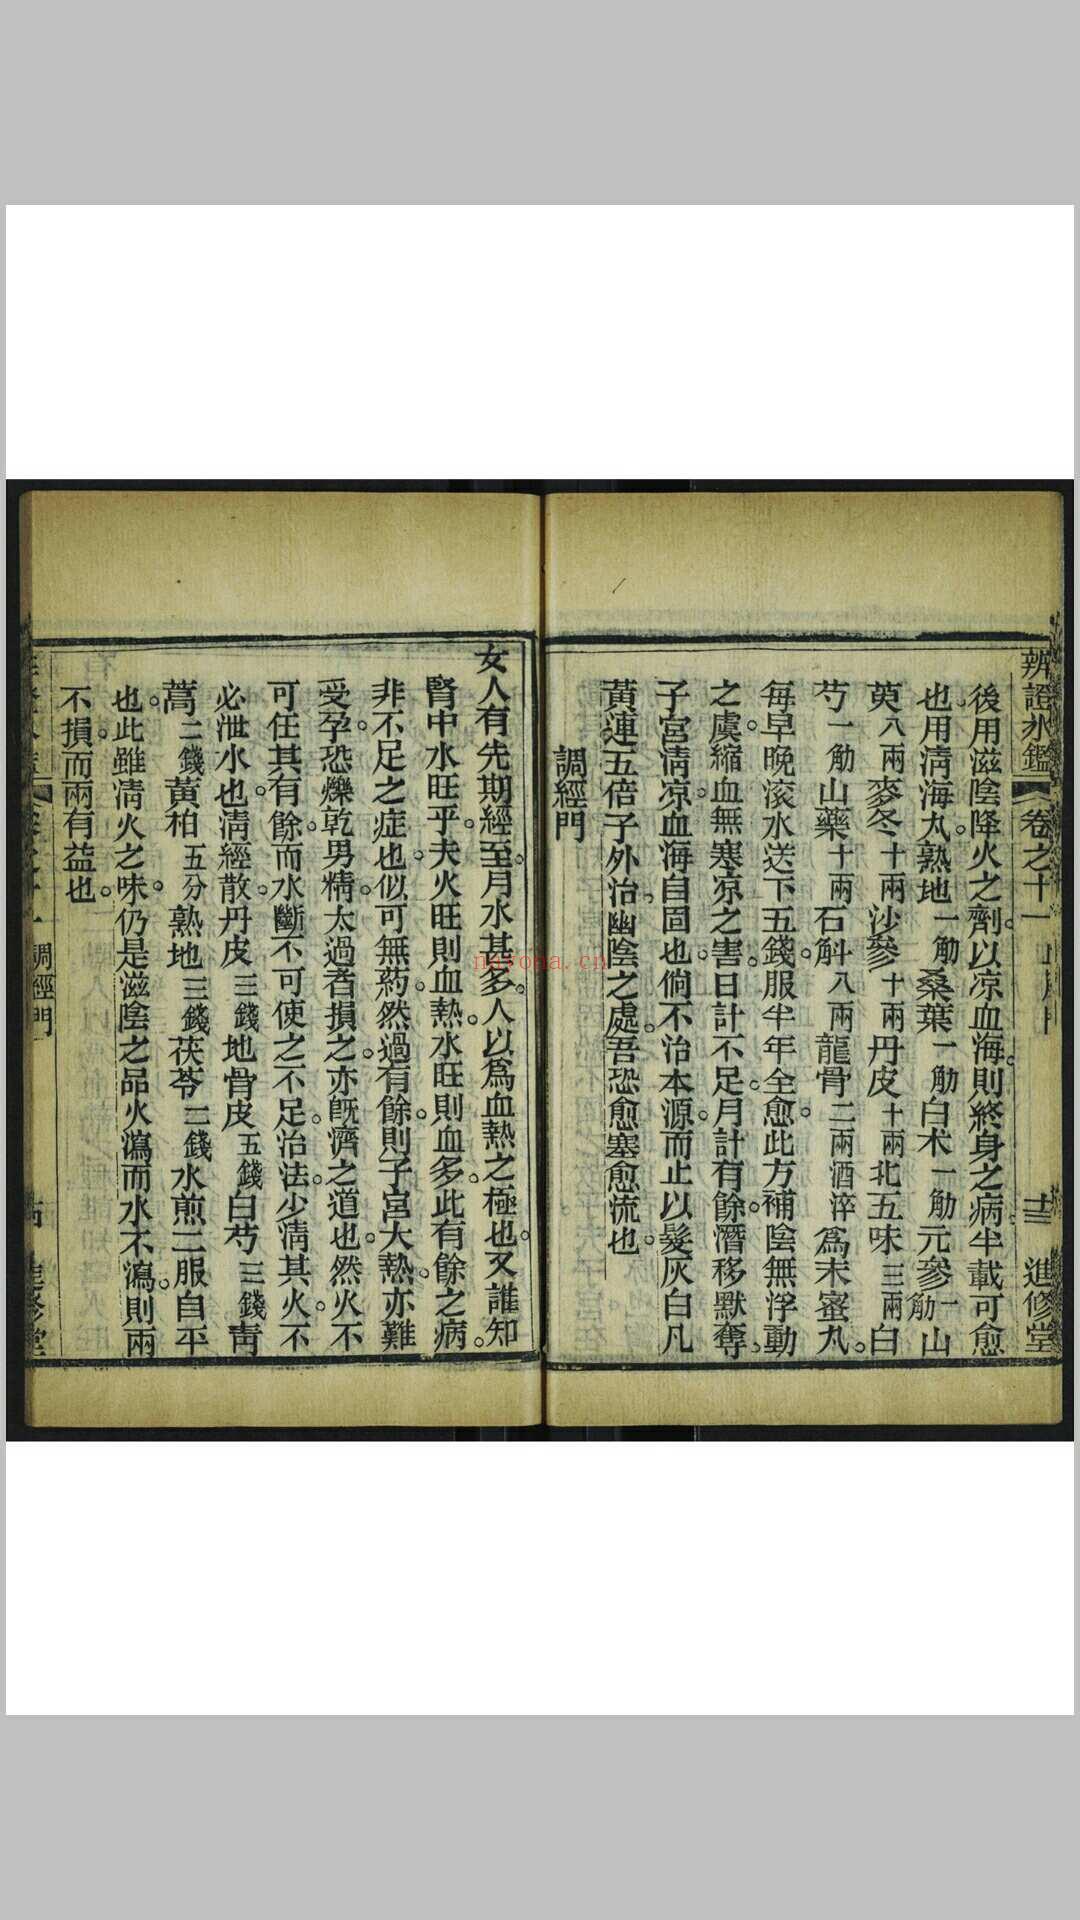 辨證氷鑑 卷之十一 十三 進修堂
後用滋陰降火之劑以凉血海則終身之病半載可愈
也用清海丸熟地一觔桑葉一觔白术一觔元參一觔山
萸八兩麥冬十兩沙參十兩丹皮十兩北五味三兩白
芍一觔山藥十兩石斛八兩龍骨二兩酒淬爲末蜜丸
每早晚滾水送下五錢服半年全愈此方補陰無浮動
之虞縮血無寒凉之害日計不足月計有餘潛移默奪
子宮清凉血海自固也倘不治本源而止以髮灰白凡
黄連五倍子外治幽陰之處吾恐愈塞愈流也
調經門
女人有先期經至月水甚多人以爲血熱之極也又誰知
腎中水旺乎夫火旺則血熱水旺則血多此有餘之病
非不足之症也似可無葯然過有餘則子宮大熱亦難
受孕恐爍乾男精太過者損之亦旣濟之道也然火不
可任其有餘而水斷不可使之不足治法少清其火不
必泄水也清經散丹皮三錢地骨皮五錢白芍三錢青
蒿二錢黄柏五分熟地三錢茯苓二錢水煎二服自平
也此雖清火之味仍是滋陰之品火瀉而水不瀉則兩
不損而兩有益也
調經門
nayona.cn